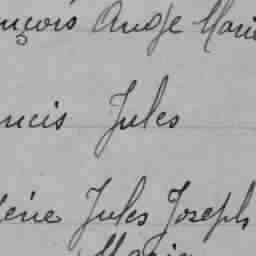 nçois Ange Marie
ncis Jules
Jules Joseph
Marie